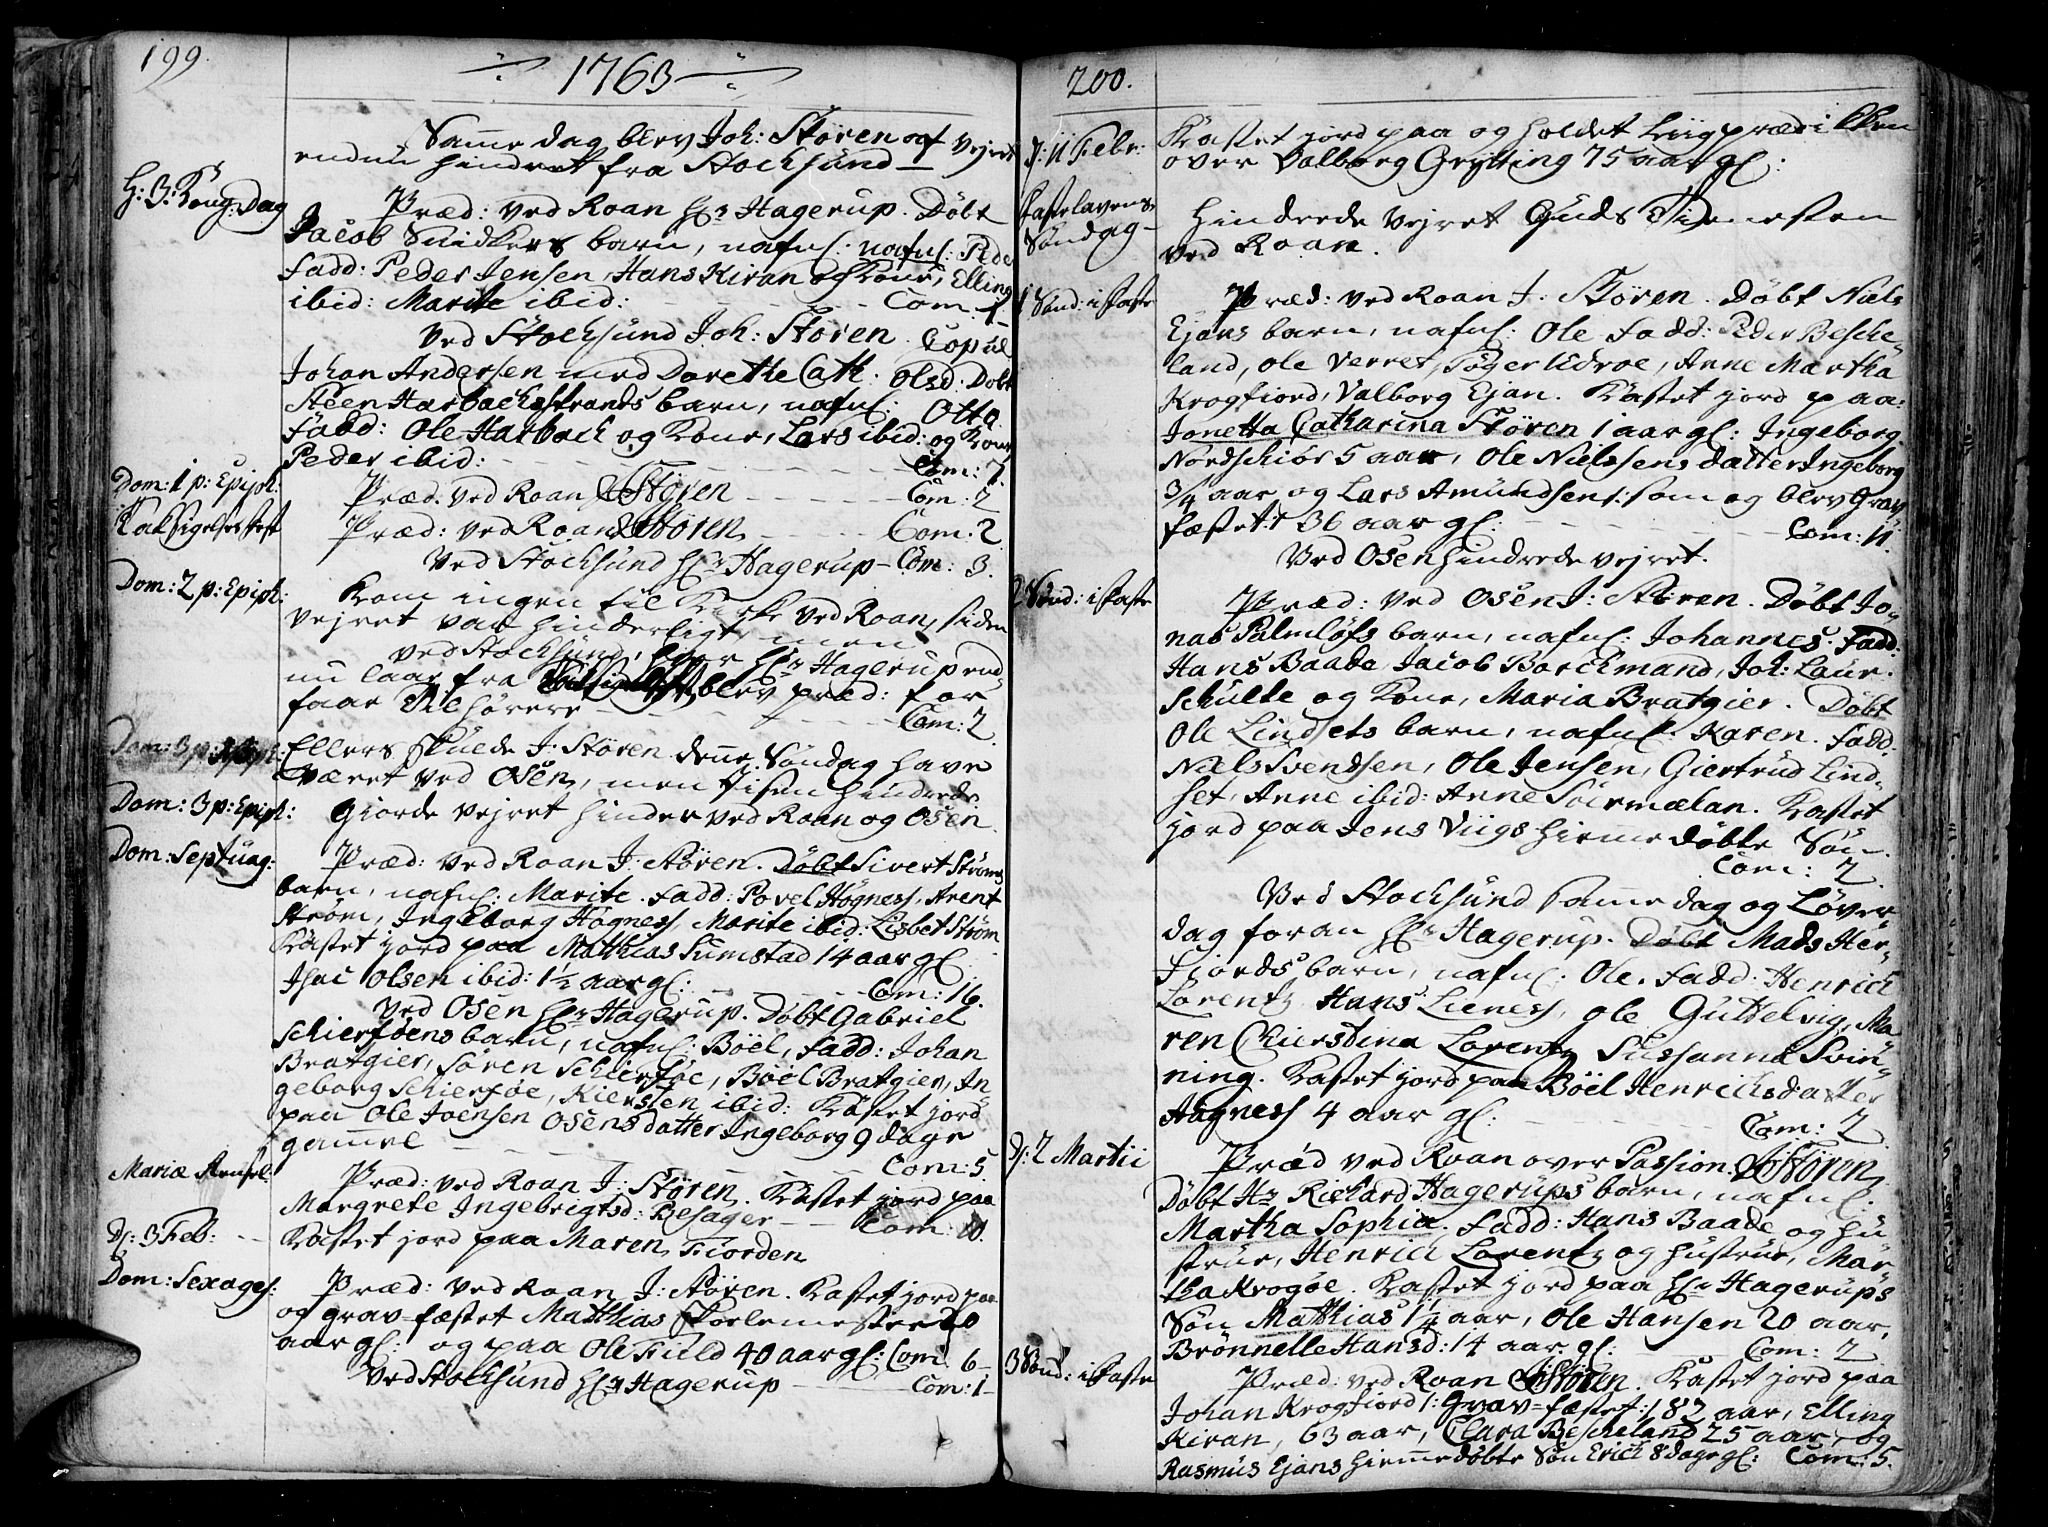 199.
1763
Samme dag blev Joh: Stören af Vejret
endnu hindret fra Stocksund
H: 3: Kong: Dag
Præd: ved Roan Hr Hagerup. Döbt
Jacob Snidkers barn, nafnl: nafnl: Peder
Fadd: Peder Jensen, Hans Kiran og Kone, Elling
ibid: Marite ibid: Com: 1
Ved Stocksund Joh: Stören. Copul
Johan Andersen med Dorethe Cath: Olsd: Döbt
Steen Harbachsstrands barn, nafnl: Otto
Fadd: Ole Harbach og Kone, Lars ibid: og Kone
Peder ibid: Com: 7.
Dom: 1 p: Epiph:
Præd: ved Roan J: Stören Com: 2
Taksigelses fest
Præd: ved Roan J: Stören Com: 2
Ved Stocksund Hr Hagerup Com: 3.
Dom: 2 p: Epiph:
Kom ingen til Kirke ved Roan, siden
vejret var hinderligt men
ved Stocksund, hvor Hr Hagerup end
nu laae fra blev præd: for
faae Tilhörere Com: 2
Ellers skulde J: Stören denne Söndag have
været ved Osen, men Jisen hindrede
Dom: 3 p: Epiph:
Giorde vejret hinder ved Roan og Osen.
Dom: Septuag:
Præd: ved Roan J: Stören. Döbt Sivert Ströms
barn, nafnl: Marite. Fadd: Povel Högness, Arent
Ström, Ingeborg Högness, Marite ibid: Lisbet Ström
Kastet jord paa Matthias Sumstad 14 aar gl
Isac Olsen ibid: 1½ aar gl: Com: 16.
Ved Osen Hr Hagerup. Döbt Gabriel
Schierföens barn, nafnl: Böel, Fadd: Johan
Bratgier, Sören Schierföe, Böel Bratgier, In
geborg Schierföe, Kiersten ibid: Kastet jord
paa Ole Joensen Osens datter Ingeborg 9 dage
gammel Com: 5.
Mariæ Rensel:
Præd: ved Roan J: Stören. Kastet jord paa
Margrete Ingebrigtsd: Besager Com: 10.
D: 3 Feb:
Kastet jord paa Maren Fiorden
Dom: Sexages:
Præd: ved Roan J: Stören. Kastet jord paa
og grav-fæstet Matthias Skolemester 20
aar gl: og paa Ole Field 40 aar gl: Com: 6
Ved Stocksund Hr Hagerup Com: 1
200.
D: 11 Febr:
Kastet jord paa og holdet Liigprædikken
over Valborg Grytting 75 aar gl:
Fastelavens
Söndag
Hindrede Vejret Guds Tienesten
ved Roan.
1 Sönd: i Faste
Præd: ved Roan J: Stören. Döbt Niels
Ejans barn, nafnl: Ole Fadd: Peder Besche
land, Ole Verret, Töger Udroe, Anne Martha
Krogfiord, Valborg Ejan. Kastet jord paa:
Jonetta Catharina Stören 1 aar gl: Ingeborg
Nordschiör 5 aar, Ole Nielssens datter Ingeborg
¾ aar og Lars Amundsen: som og blev Grav
fæstet: 36 aar gl: Com: 11.
Ved Osen hindrede vejret.
2 Sönd: i Faste
Præd: ved Osen J: Stören. Döbt Jo
nas Palmlöfs barn, nafnl: Johannes. Fadd:
Hans Baade, Jacob Borckmand, Joh: Laur.
Schulte og Kone, Maria Bratgier. Döbt
Ole Lindsets barn, nafnl: Karen. Fadd:
Niels Svendsen, Ole Jensen, Giertrud Lind
set, Anne ibid: Anne Söermælan. Kastet
jord paa Jens Viigs hiemmedöbte Sön.
Com: 2.
Ved Stocksund samme dag og Löver
dag foran Hr Hagerup. Döbt Mads Her
fjords barn, nafnl: Ole. Fadd: Henrich
Lorentz, Hans Lieness, Ole Guttelvig, Ma
ren Chierstina Lorentz, Sussanna Svin
ning. Kastet jord paa Böel Henrichsdatter
Hagness 4 aar gl: Com: 2
D: 2 Martii
Præd ved Roan over Passion. J: Stören
Döbt Hr Richard Hagerups barn, nafnl:
Martha Sophia. Fadd: Hans Baade og Hu
strue, Henrich Lorentz og hustrue, Mar
tha Krogöe. Kastet jord paa Hr Hagerups
Sön Matthias 1¼ aar, Ole Hansen 20 aar,
Brönnelle Hansd: 14 aar gl: Com: 2
3 Sönd: i Faste
Præd: ved Roan J: Stören. Kastet jord paa
Johan Krogfiord /: Grav-fæstet :/ 82 aar, Elling
Kiran, 63 aar, Clara Bescheland 25 aar, og
Rasmus Ejans hiemmedöbte Sön Erich 8 dage gl: Com: 5.